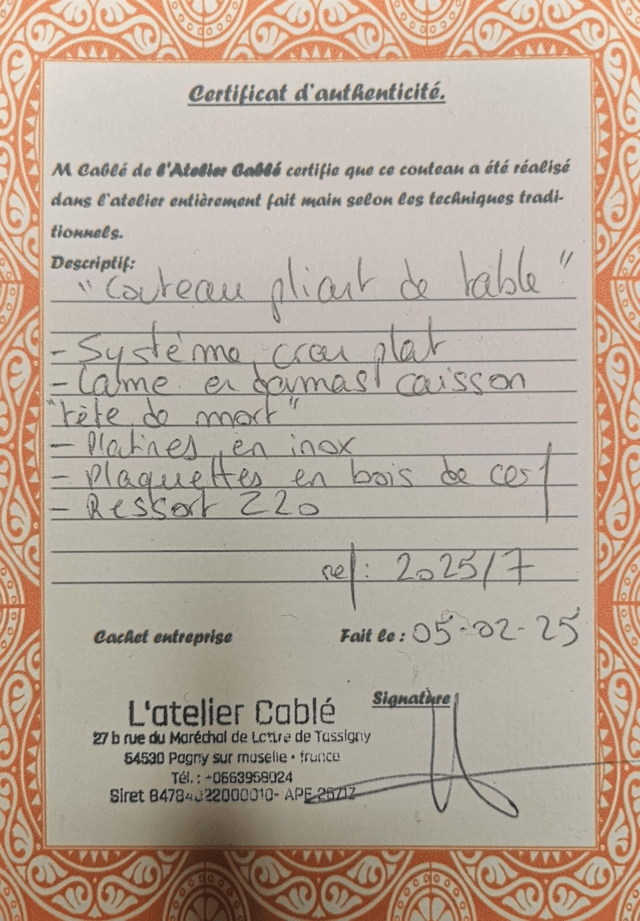 Certificat d'authenticité.
M Cablé de l'Atelier Cablé certifie que ce couteau a été réalisé
dans l'atelier entièrement fait main selon les techniques tradi-
tionnels.
Descriptif:
"Couteau pliant de table"
- Système cran plat
- Lame en damas caisson
"tête de mort"
- Platines en inox
- Plaquettes en bois de cerf
- Ressort 220
ref: 2025/7
Cachet entreprise
Fait le : 05-02-25
Signature
L'atelier Cablé
27 b rue du Maréchal de Lattre de Tassigny
54530 Pagny sur moselle - france
Tél. : +0663958024
Siret 84784322000010- APE 2571Z